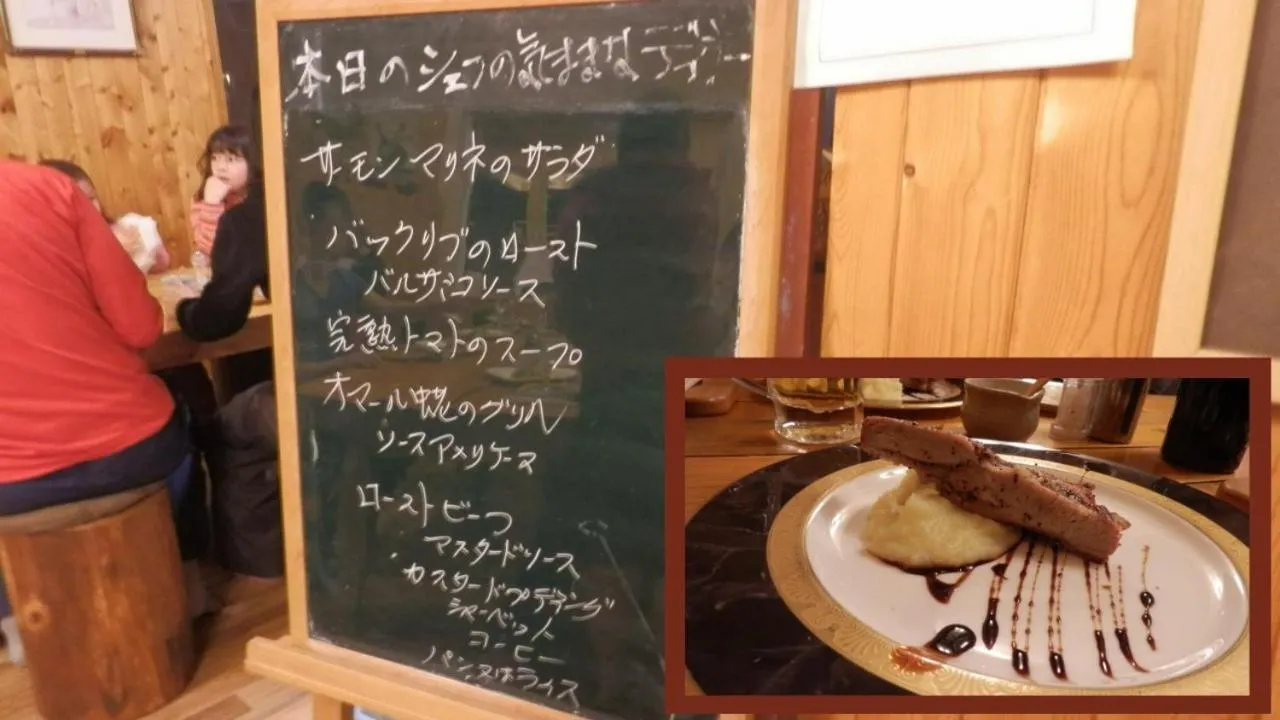 本日のシェフの気ままなディナー
サーモンマリネのサラダ
バックリブのロースト
バルサミコソース
完熟トマトのスープ
オマール蛯のグリル
ソースアメリケーヌ
ローストビーフ
マスタードソース
カスタードプディング
シャーベット
コーヒー
パン又はライス